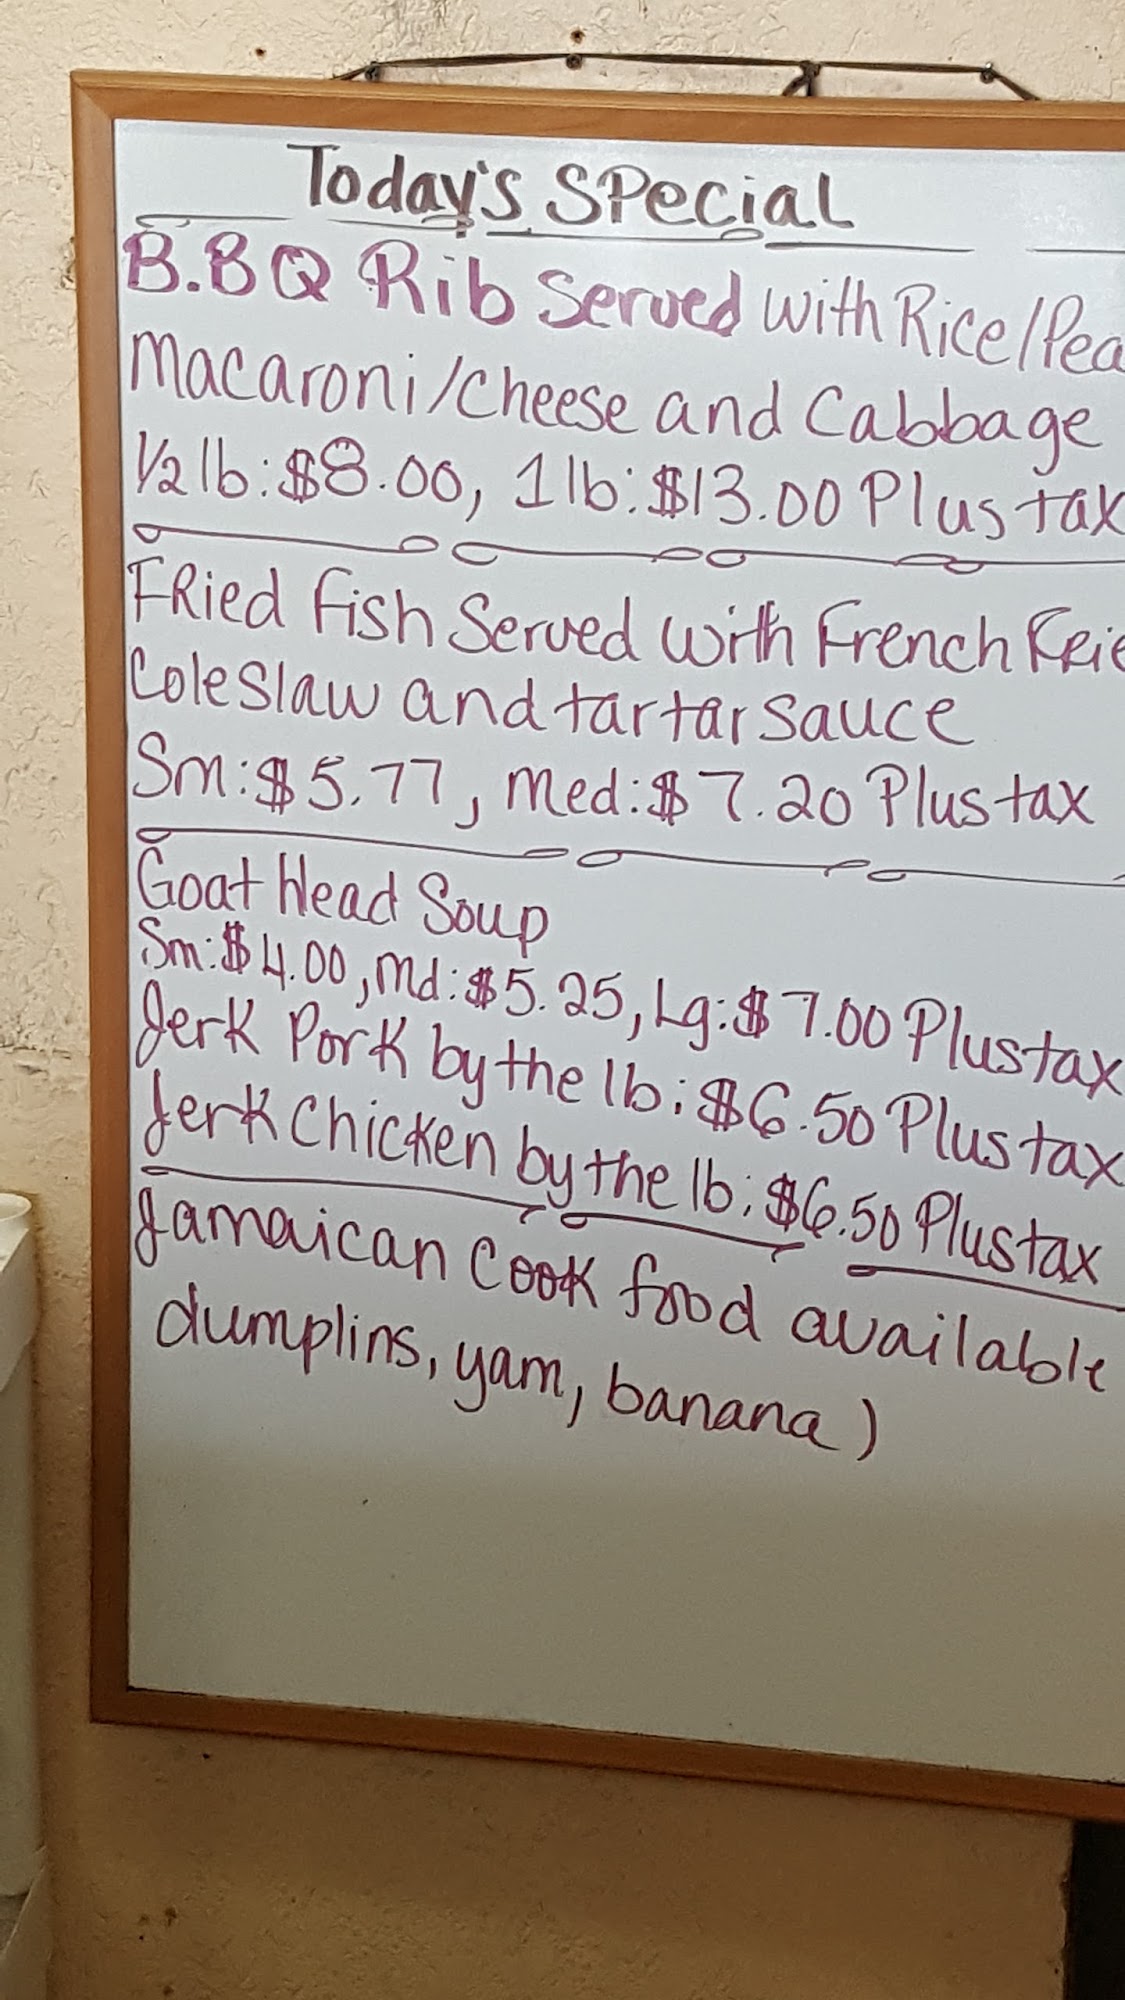 Today's Special
B.BQ Rib Served with Rice/Pea
Macaroni/Cheese and Cabbage
1/2 lb: $8.00, 1 lb: $13.00 Plus tax
Fried fish Served with French Frie
Coleslaw and tartar sauce
Sm: $5.77, Med: $7.20 Plus tax
Goat Head Soup
Sm: $4.00, Md: $5.25, Lg: $7.00 Plus tax
Jerk Pork by the lb: $6.50 Plus tax
Jerk Chicken by the lb: $6.50 Plus tax
Jamaican Cook food available
dumplins, yam, banana)